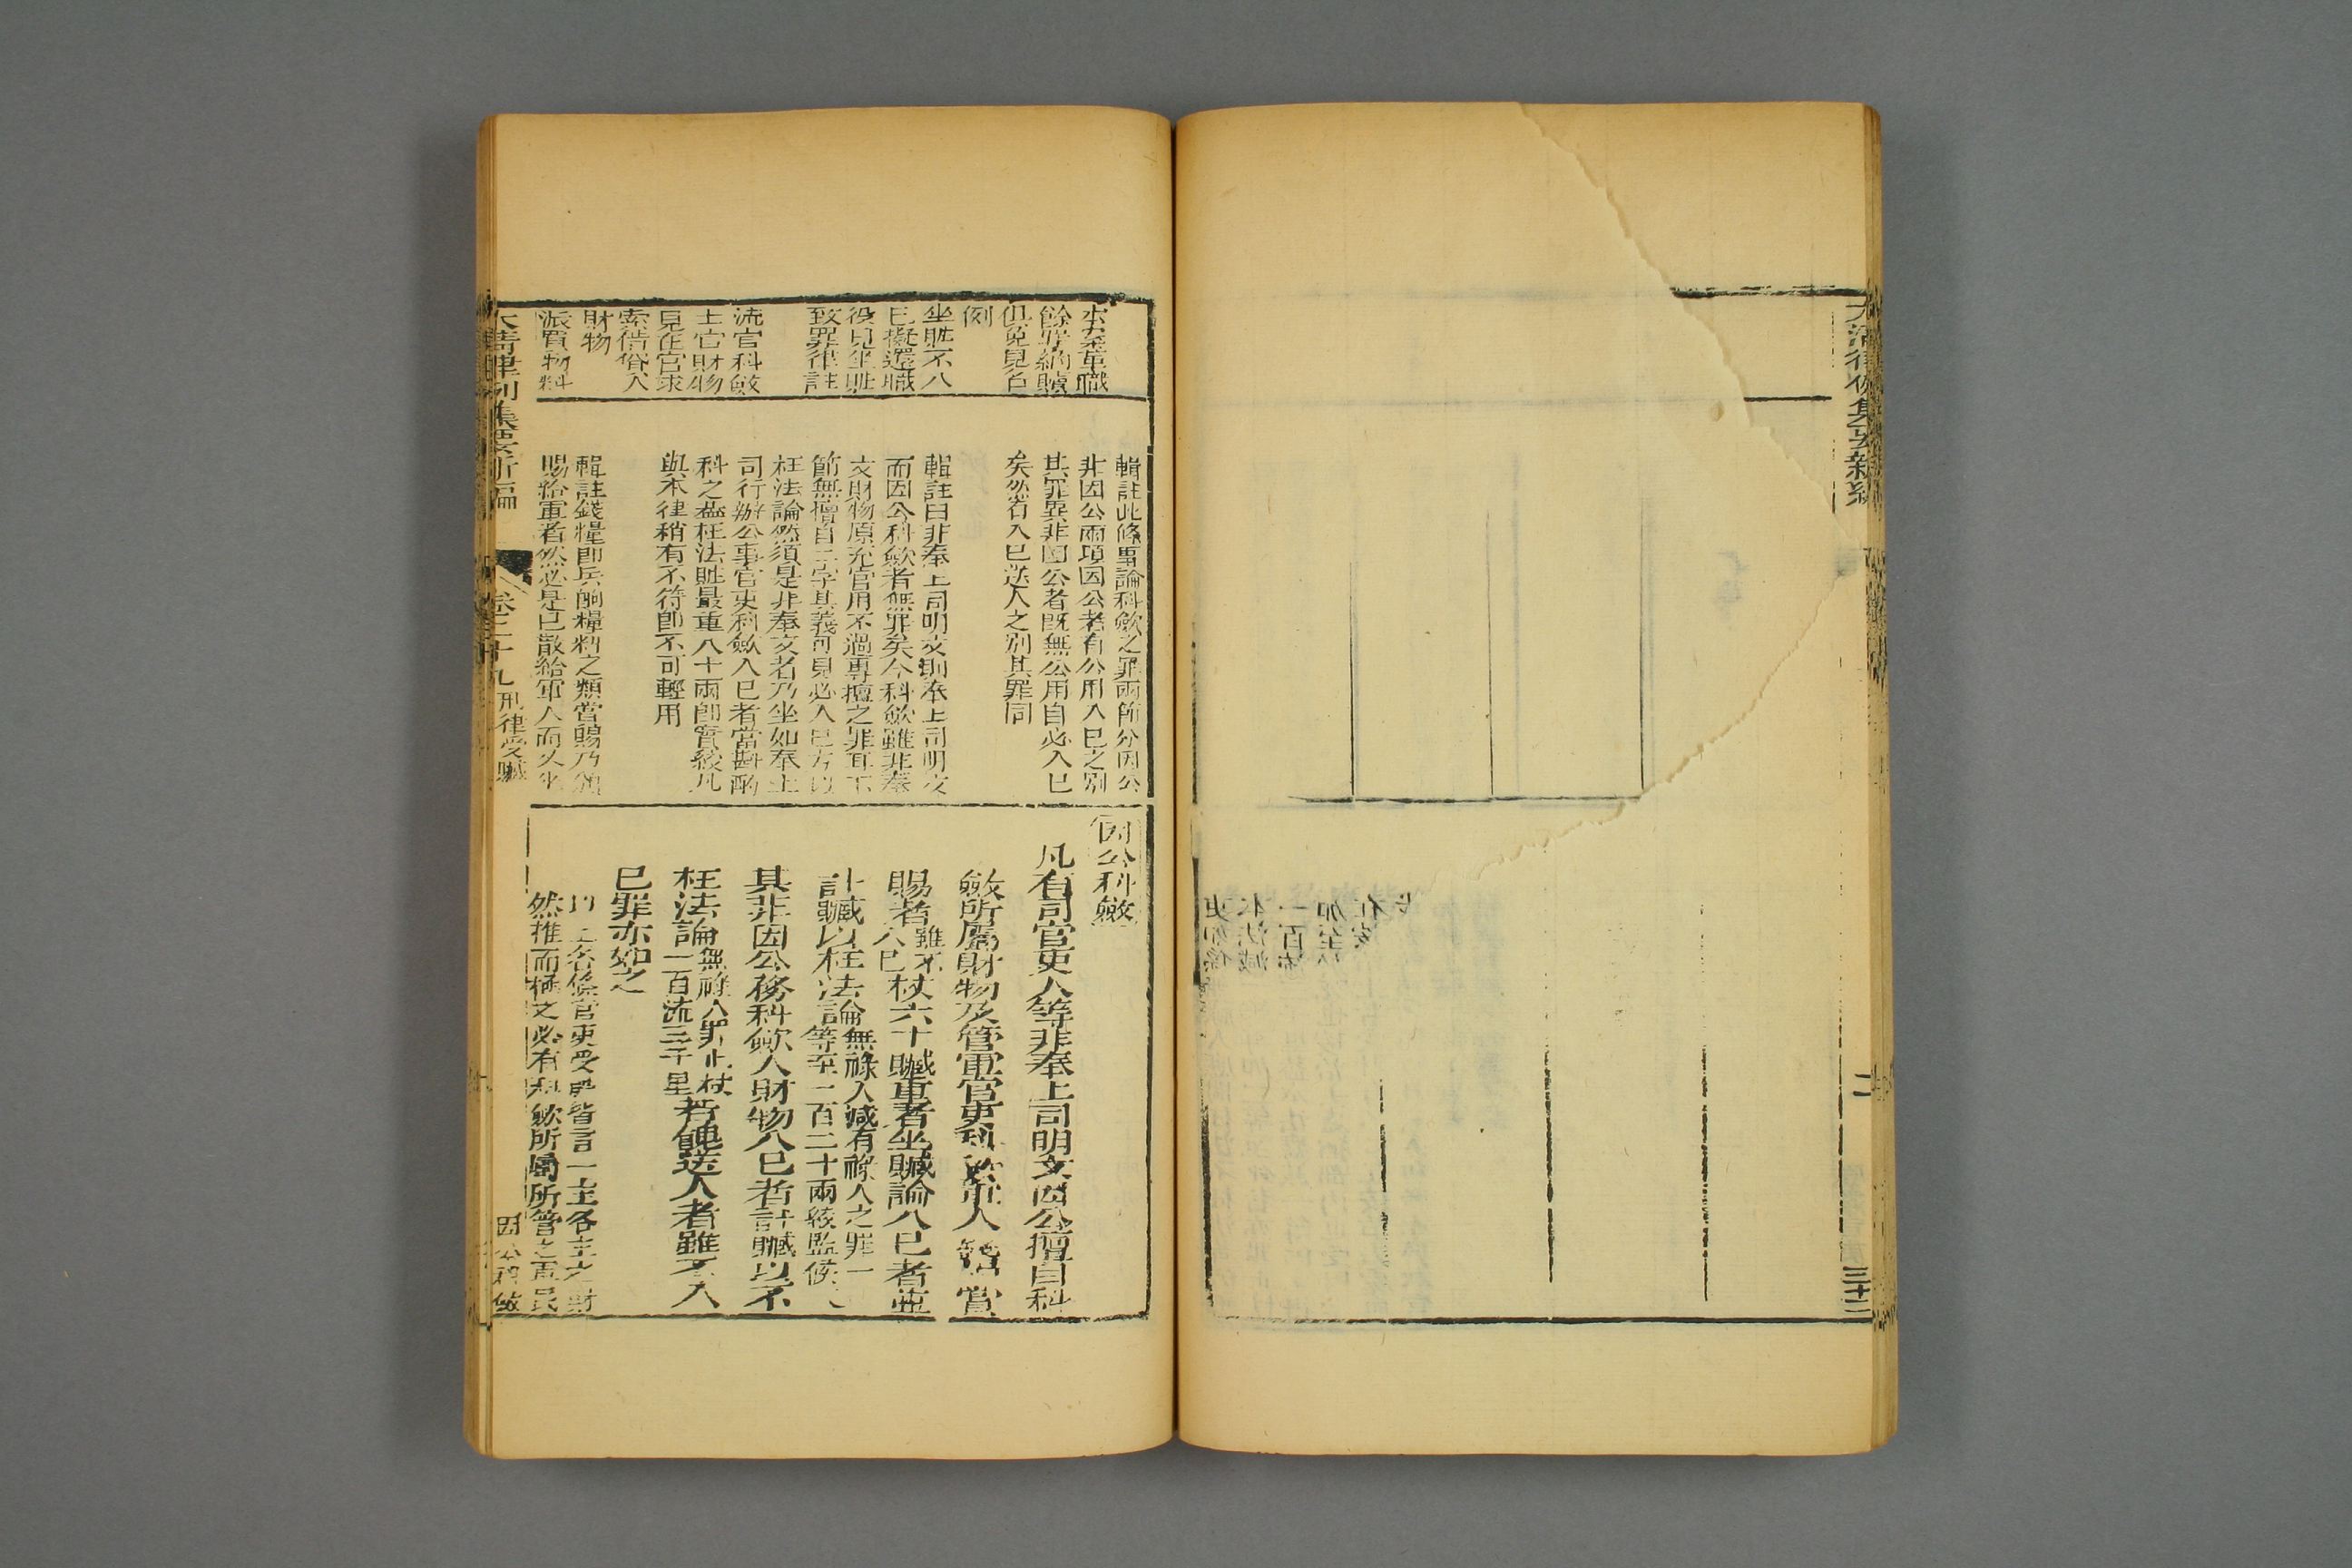 大清律例集要新編
二
三十二
本案革職
餘罪納贖
俱免見名
例
坐贓不入
已擬還職
役見坐贓
致罪律註
流官科斂
土官財物
見在官求
索借貸人
財物
派買物料
輯註此條專論科斂之罪兩節分因公
非因公兩項因公者有公用入已之別
其罪異非因公者既無公用自必入已
矣然若入已送人之別其罪同
輯註曰非奉上司明文則奉上司明文
而因公科斂者無罪矣今科斂雖非奉
文財物原充官用不過專擅之罪耳下
節無擅自二字其義可見必入已方以
枉法論然須是非奉文者乃坐如奉上
司行辦公事官吏科斂入已者當斟酌
科之蓋枉法贓最重八十兩卽實絞凡
與本律稍有不符卽不可輕用
輯註錢糧卽兵餉糧料之類賞賜乃頒
賜給軍者然必是已散給軍人而又
因公科斂
凡有司官吏人等非奉上司明文因公擅自科
斂所屬財物及管軍官吏科斂軍人錢糧賞
賜者雖不入已杖六十贓重者坐贓論入已者並
計贓以枉法論無祿人減有祿人之罪一等至一百二十兩絞監候
其非因公務科斂人財物入已者計贓以不
枉法論無祿人罪止杖一百流三千里若餽送人者雖不入
已罪亦如之
各條官吏受財皆言一主各主之財
然推而極之必有科斂所屬所管之軍民
大清律例集要新編
卷二十九 刑律受贓
因公科斂